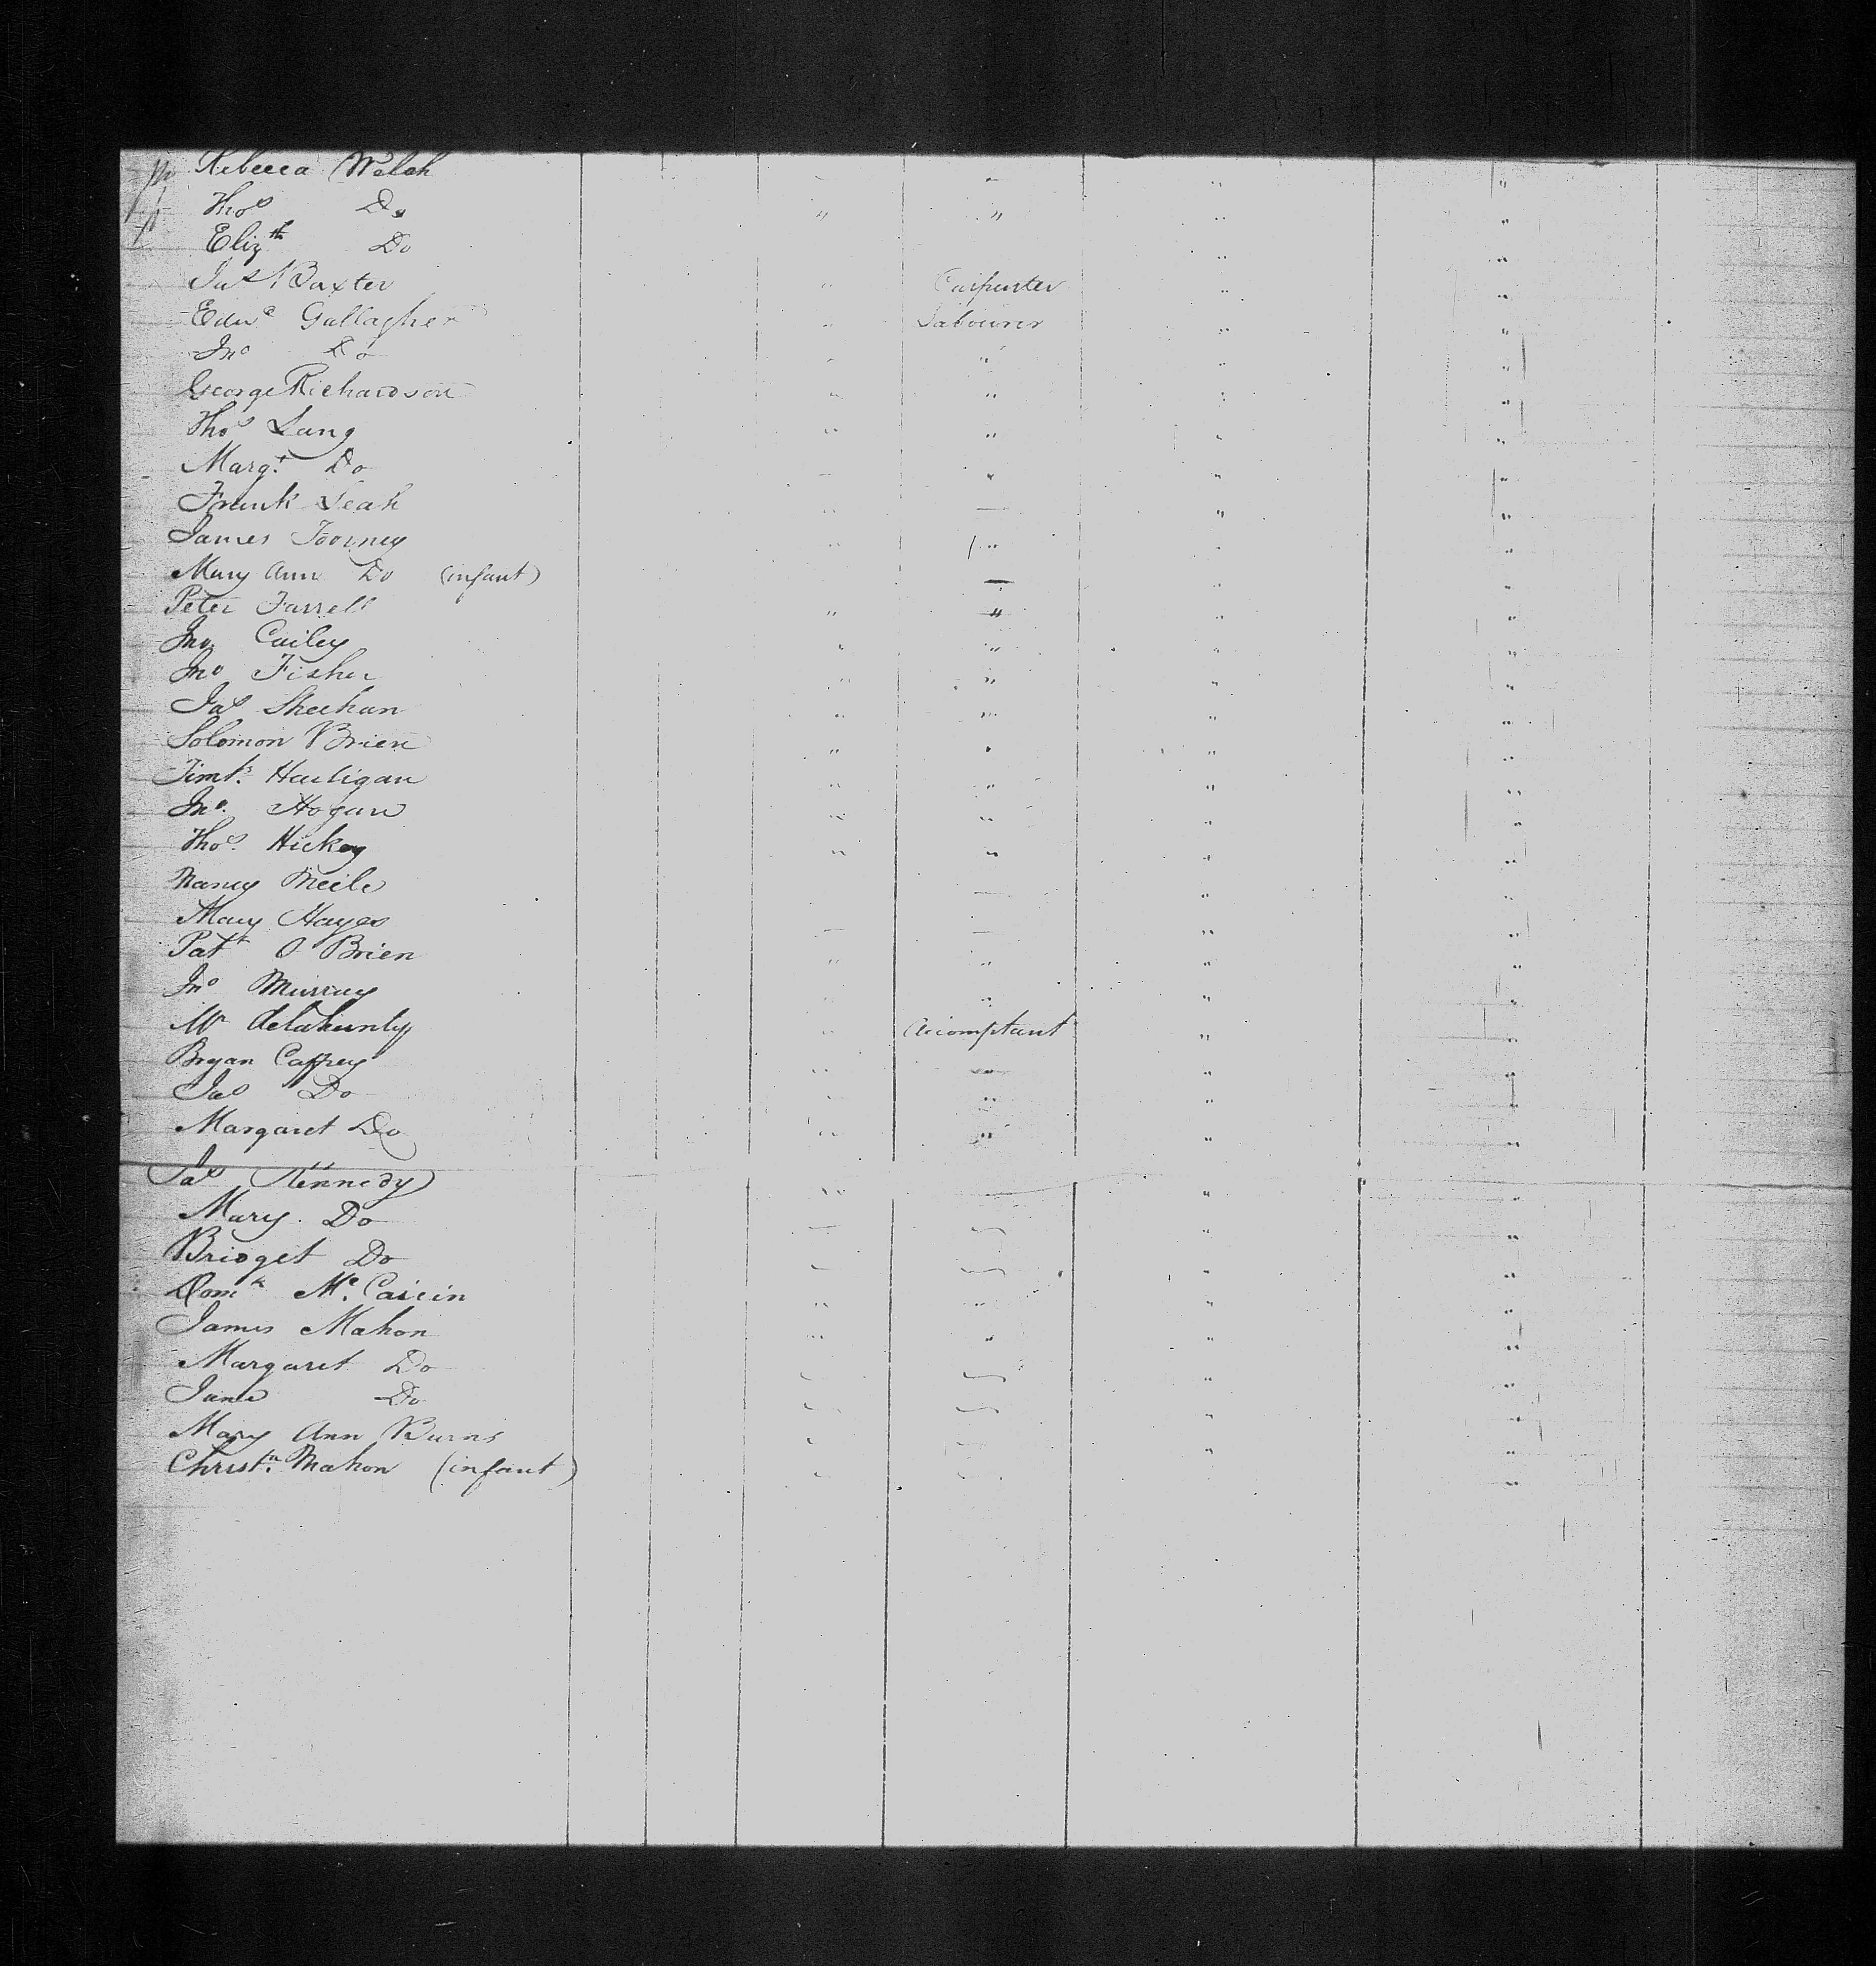 Rebecca Welsh " " " "
Thos Do " " " "
Elizth Do " "
Jas Baxter " Carpenter " "
Edwd Gallagher " Labourer " "
Jno Do " " " "
George Richardson " " " "
Thos Lang " " " "
Margt Do — " " "
Frank Leah " — " "
James Toorney " " " "
Mary Ann Do (infant) — " "
Peter Farrell " " " "
Jno Cailey " " " "
Jno Fisher " " " "
Jas Sheehan " " " "
Solomon Brien " " " "
Timty Hauligan " " " "
Jno. Hogan " " " "
Thos. Hickey " " " "
Nancy Meile — " "
Mary Hayes — — " "
Patk O Brien " " " "
Jno Murray " " " "
Mr delahunty " Accomptant " "
Bryan Caffrey " " " "
Jas Do " " " "
Margaret Do " " " "
Jas Kennedy " — " "
Mary Do — " "
Bridget Do " "
Domk Mc. " " " "
James Mahon " " " "
Margaret Do " "
Jane Do " "
Mary Ann Burns " "
Christn. Mahon (infant) "